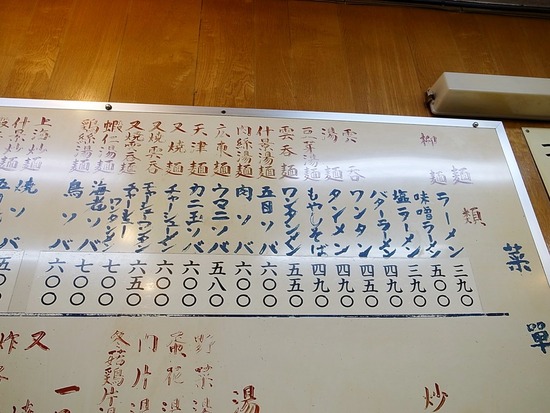 菜單
麺類
柳麺 ラーメン 三九〇
味噌ラーメン 五〇〇
塩ラーメン 三九〇
バターラーメン 四九〇
雲呑 ワンタン 四五〇
湯麺 タンメン 四九〇
豆芽湯麺 もやしそば 四九〇
雲呑麺 ワンタンメン 五五〇
什景湯麺 五目ソバ 六〇〇
肉絲湯麺 肉ソバ 六〇〇
広東麺 ウマニソバ 五八〇
天津麺 カニ玉ソバ 六〇〇
叉焼麺 チャーシューメン 六〇〇
叉焼雲呑麺 チャーシューワンタンメン 六五〇
蝦仁湯麺 海老ソバ 七〇〇
鶏絲湯麺 鳥ソバ 七〇〇
什景炒麺 六〇〇
上海炒麺 焼ソバ
炒
湯
野菜
蛋花
肉片
冬菇鶏片